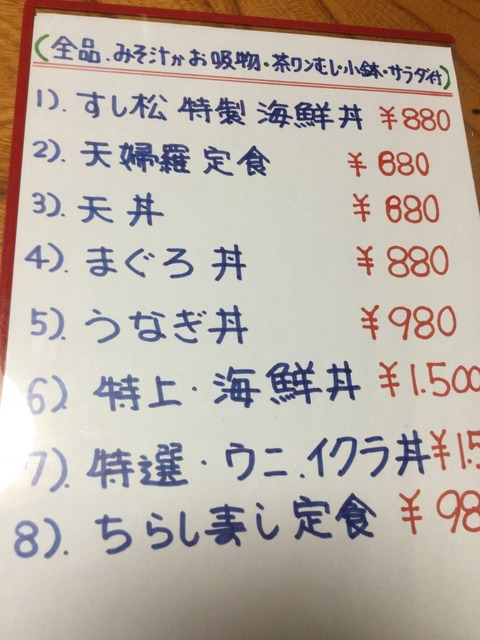 (全品.みそ汁かお吸物・茶ワンむし・小鉢・サラダ付)
1).すし松 特製 海鮮丼 ¥880
2).天婦羅 定食 ¥680
3).天丼 ¥680
4).まぐろ丼 ¥880
5).うなぎ丼 ¥980
6).特上・海鮮丼 ¥1.500
7).特選・ウニ.イクラ丼 ¥1.5
8).ちらし寿し定食 ¥98